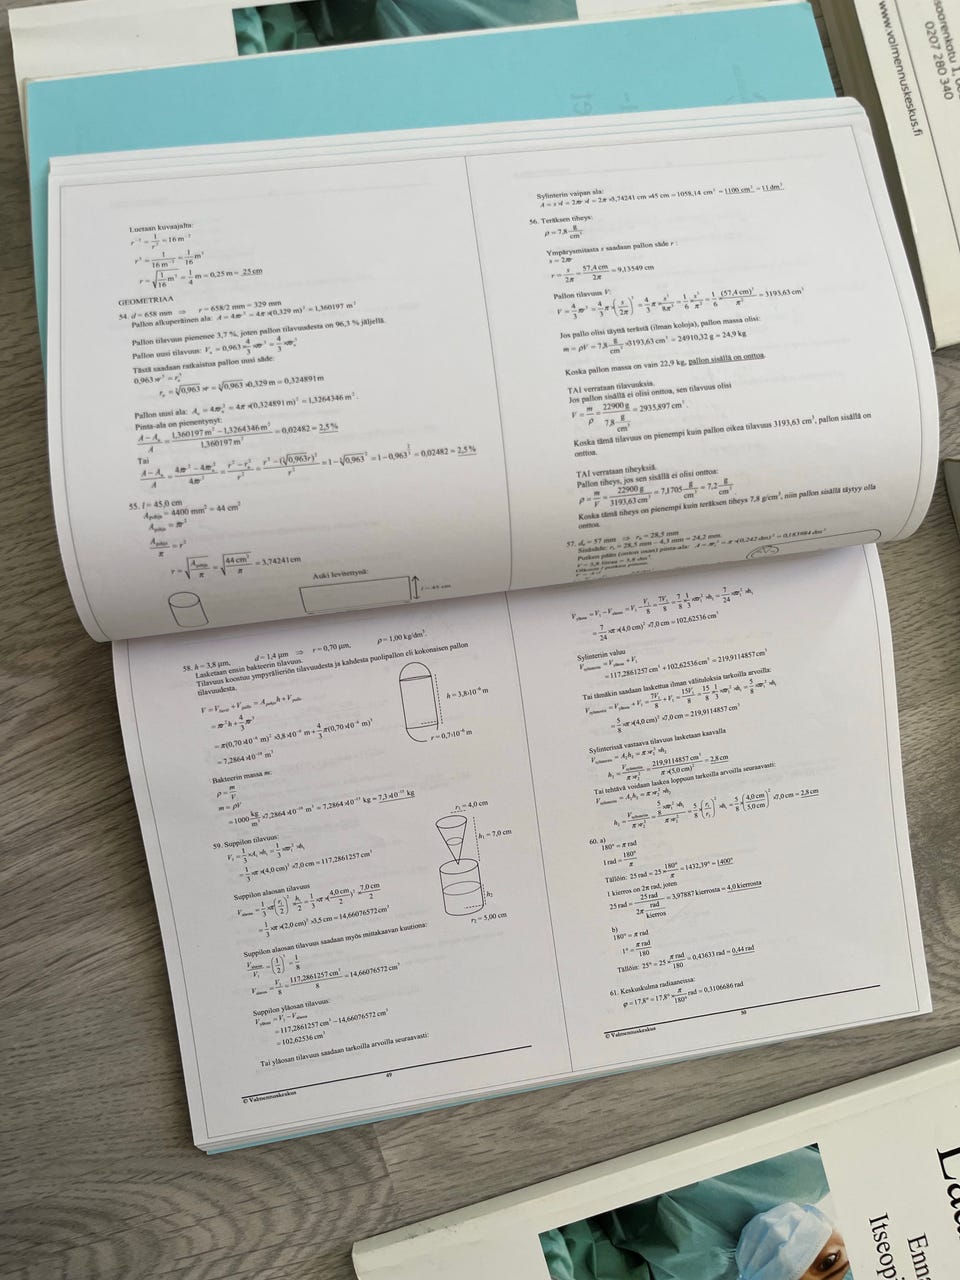 www.valmennuskeskus.fi
0207 280 340
Luetaan kuvaajalta:
r⁻² = 1/r² = 16 m⁻²
r² = 1/(16 m⁻²) = 1/16 m²
r = √(1/16 m²) = 1/4 m = 0,25 m = 25 cm
GEOMETRIAA
54. d = 658 mm ⇒ r = 658/2 mm = 329 mm
Pallon alkuperäinen ala: A = 4πr² = 4π×(0,329 m)² = 1,360197 m²
Pallon tilavuus pienenee 3,7 %, joten pallon tilavuudesta on 96,3 % jäljellä.
Pallon uusi tilavuus: Vᵤ = 0,963×4/3 πr³ = 4/3 πrᵤ³
Tästä saadaan ratkaistua pallon uusi säde:
0,963×r³ = rᵤ³
rᵤ = ∛0,963×r = ∛0,963×0,329 m = 0,324891 m
Pallon uusi ala: Aᵤ = 4πrᵤ² = 4π×(0,324891 m)² = 1,3264346 m².
Pinta-ala on pienentynyt:
(A − Aᵤ)/A = (1,360197 m² − 1,3264346 m²)/(1,360197 m²) = 0,02482 = 2,5%
Tai
(A − Aᵤ)/A = (4πr² − 4πrᵤ²)/(4πr²) = (r² − rᵤ²)/r² = (r² − (∛0,963 r)²)/r² = 1 − ∛0,963² = 1 − 0,963^(2/3) = 0,02482 = 2,5%
55. l = 45,0 cm
A_pohja = 4400 mm² = 44 cm²
A_pohja = πr²
A_pohja/π = r²
r = √(A_pohja/π) = √(44 cm²/π) = 3,74241 cm
Auki levitettynä:
l = 45 cm
Sylinterin vaipan ala:
A = s×l = 2πr×l = 2π×3,74241 cm×45 cm = 1058,14 cm² = 1100 cm² = 11 dm².
56. Teräksen tiheys:
ρ = 7,8 g/cm³
Ympärysmitasta s saadaan pallon säde r:
s = 2πr
r = s/2π = 57,4 cm/2π = 9,13549 cm
Pallon tilavuus V:
V = 4/3 πr³ = 4/3 π(s/2π)³ = 4/3 π s³/8π³ = 1/6 s³/π² = 1/6 (57,4 cm)³/π² = 3193,63 cm³
Jos pallo olisi täyttä terästä (ilman koloja), pallon massa olisi:
m = ρV = 7,8 g/cm³×3193,63 cm³ = 24910,32 g = 24,9 kg
Koska pallon massa on vain 22,9 kg, pallon sisällä on onttoa.
TAI verrataan tilavuuksia.
Jos pallo sisällä ei olisi onttoa, sen tilavuus olisi
V = m/ρ = 22900 g/(7,8 g/cm³) = 2935,897 cm³.
Koska tämä tilavuus on pienempi kuin pallon oikea tilavuus 3193,63 cm³, pallon sisällä on
onttoa.
TAI verrataan tiheyksiä.
Pallon tiheys, jos sen sisällä ei olisi onttoa:
ρ = m/V = 22900 g/3193,63 cm³ = 7,1705 g/cm³ = 7,2 g/cm³.
Koska tämä tiheys on pienempi kuin teräksen tiheys 7,8 g/cm³, niin pallon sisällä täytyy olla
onttoa.
57. dᵤ = 57 mm ⇒ rᵤ = 28,5 mm
Sisäsäde: rₛ = 28,5 mm − 4,3 mm = 24,2 mm.
Putken pään (onton osan) pinta-ala: A = πrₛ² = π×(0,242 dm)² = 0,183984 dm²
58. h = 3,8 μm, d = 1,4 μm ⇒ r = 0,70 μm, ρ = 1,00 kg/dm³.
Lasketaan ensin bakteerin tilavuus.
Tilavuus koostuu ympyrälieriön tilavuudesta ja kahdesta puolipallon eli kokonaisen pallon
tilavuudesta.
V = V_lieriö + V_pallo = A_pohja h + V_pallo
= πr²h + 4/3 πr³
= π(0,70×10⁻⁶ m)²×3,8×10⁻⁶ m + 4/3 π(0,70×10⁻⁶ m)³
= 7,2864×10⁻¹⁸ m³
h = 3,8·10⁻⁶ m
r = 0,7·10⁻⁶ m
Bakteerin massa m:
ρ = m/V
m = ρV
= 1000 kg/m³×7,2864×10⁻¹⁸ m³ = 7,2864×10⁻¹⁵ kg = 7,3×10⁻¹⁵ kg
59. Suppilon tilavuus:
V₁ = 1/3×A₁×h₁ = 1/3×πr₁²×h₁
= 1/3×π×(4,0 cm)²×7,0 cm = 117,2861257 cm³
r₁ = 4,0 cm
h₁ = 7,0 cm
h₂
r₂ = 5,00 cm
Suppilon alaosan tilavuus
V_alaosa = 1/3×π×(r₁/2)²×h₁/2 = 1/3×π×(4,0 cm/2)²×7,0 cm/2
= 1/3×π×(2,0 cm)²×3,5 cm = 14,66076572 cm³
Suppilon alaosan tilavuus saadaan myös mittakaavan kuutiona:
V_alaosa/V₁ = (1/2)³ = 1/8
V_alaosa = V₁/8 = 117,2861257 cm³/8 = 14,66076572 cm³
Suppilon yläosan tilavuus:
V_yläosa = V₁ − V_alaosa
= 117,2861257 cm³ − 14,66076572 cm³
= 102,62536 cm³
Tai yläosan tilavuus saadaan tarkoilla arvoilla seuraavasti:
49
© Valmennuskeskus
V_yläosa = V₁ − V_alaosa = V₁ − V₁/8 = 7V₁/8 = 7/8×1/3×πr₁²×h₁ = 7/24×πr₁²×h₁
= 7/24×π×(4,0 cm)²×7,0 cm = 102,62536 cm³
Sylinteriin valuu
V_sylinteriin = V_yläosa + V₁
= 117,2861257 cm³ + 102,62536 cm³ = 219,9114857 cm³
Tai tämäkin saadaan laskettua ilman välituloksia tarkoilla arvoilla:
V_sylinteriin = V_yläosa + V₁ = 7V₁/8 + V₁ = 15V₁/8 = 15/8×1/3×πr₁²×h₁ = 5/8×πr₁²×h₁
= 5/8×π×(4,0 cm)²×7,0 cm = 219,9114857 cm³
Sylinterissä vastaava tilavuus lasketaan kaavalla
V_sylinteriin = A₂h₂ = π×r₂²×h₂
h₂ = V_sylinteriin/(π×r₂²) = 219,9114857 cm³/(π×(5,0 cm)²) = 2,8 cm
Tai tehtävä voidaan laskea loppuun tarkoilla arvoilla seuraavasti:
V_sylinteriin = A₂h₂ = π×r₂²×h₂
h₂ = V_sylinteriin/(π×r₂²) = (5/8×πr₁²×h₁)/(π×r₂²) = 5/8×(r₁/r₂)²×h₁ = 5/8×(4,0 cm/5,0 cm)²×7,0 cm = 2,8 cm
60. a)
180° = π rad
1 rad = 180°/π
Tällöin: 25 rad = 25×180°/π = 1432,39° = 1400°
1 kierros on 2π rad, joten
25 rad = 25 rad/(2π rad/kierros) = 3,97887 kierrosta = 4,0 kierrosta
b)
180° = π rad
1° = π rad/180
Tällöin: 25° = 25×π rad/180 = 0,43633 rad = 0,44 rad
61. Keskuskulma radiaaneissa:
φ = 17,8° = 17,8°×π/180° rad = 0,3106686 rad
50
© Valmennuskeskus
Itseop
Enn